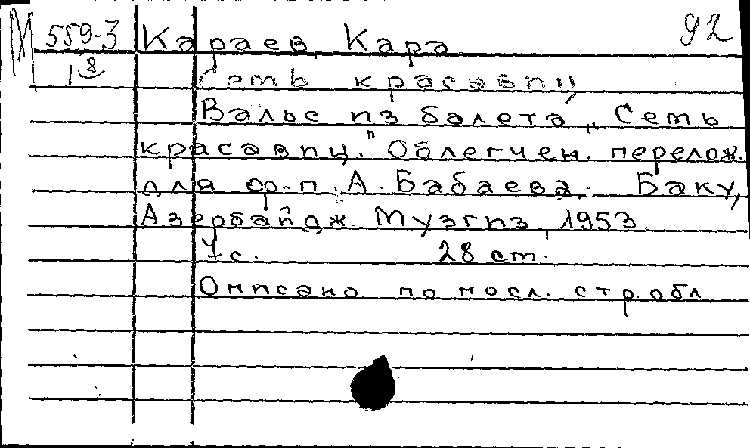 М 559-3 Караев, Кара 92
18 Семь красавиц
Вальс из балета „Семь
красавиц." Облегчен. перелож.
для ф.-п. А. Бабаева. Баку,
Азербайдж. Музгиз, 1953.
4 с. 28 см.
Описано по посл. стр. обл.